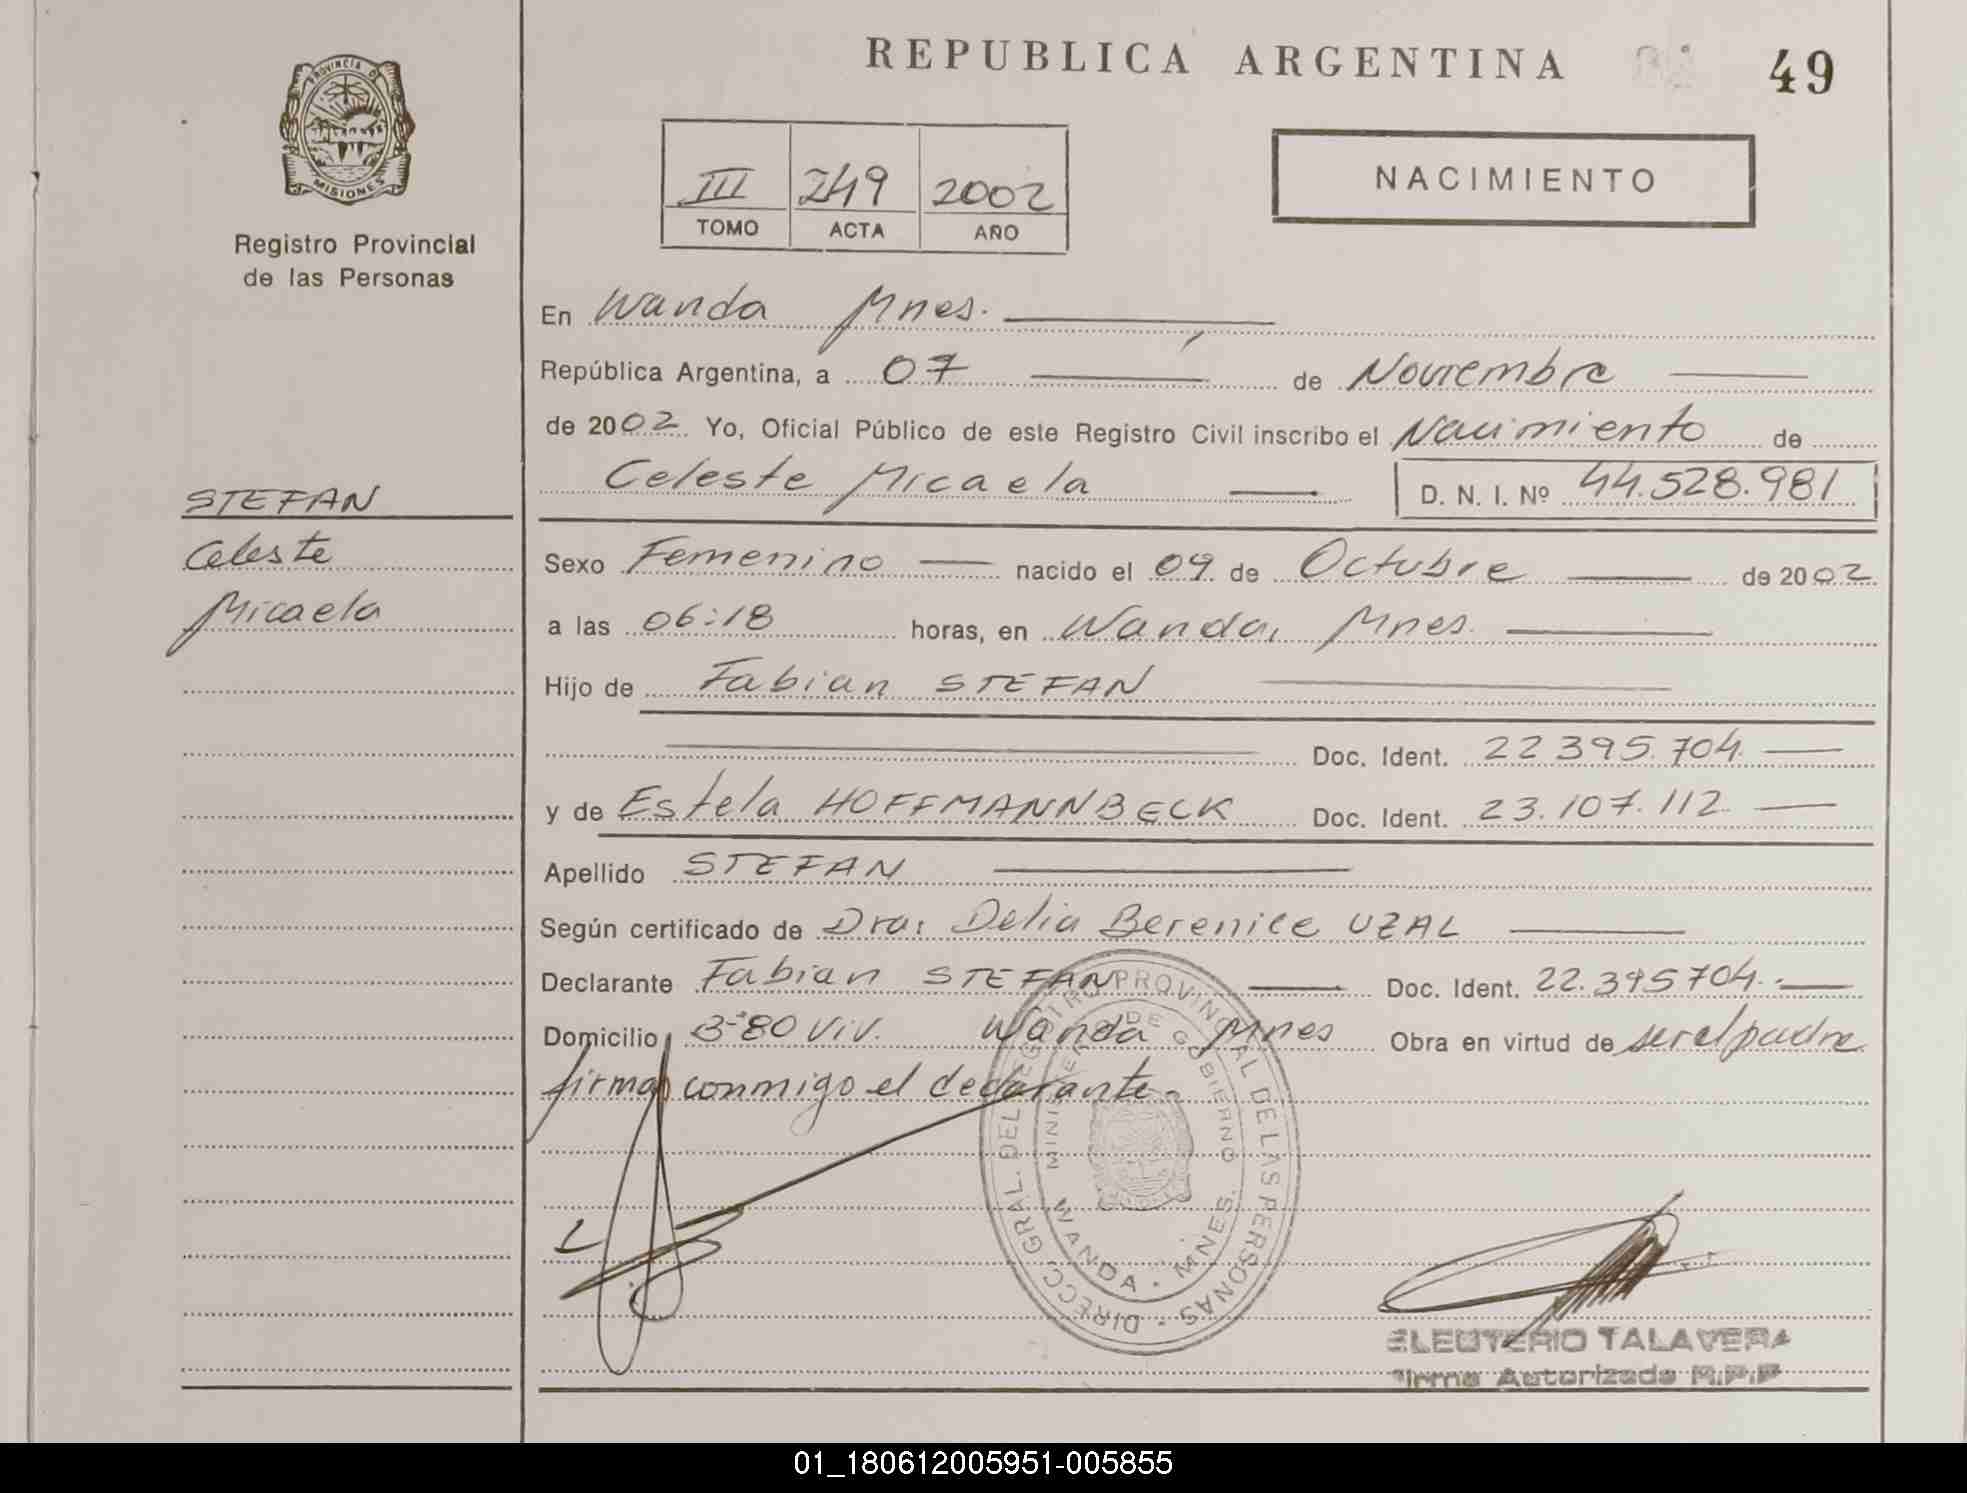 REPUBLICA ARGENTINA
49
PROVINCIA DE
MISIONES
Registro Provincial
de las Personas
III 249 2002
TOMO ACTA AÑO
NACIMIENTO
En Wanda Mnes.
República Argentina, a 07 de Noviembre
de 2002 Yo, Oficial Público de este Registro Civil inscribo el Nacimiento de
Celeste Micaela D. N. I. Nº 44.528.981
STEFAN
Celeste
Micaela
Sexo Femenino nacido el 09 de Octubre de 2002
a las 06:18 horas, en Wanda, Mnes.
Hijo de Fabian STEFAN
Doc. Ident. 22395.704
y de Estela HOFFMANNBECK Doc. Ident. 23.107.112
Apellido STEFAN
Según certificado de Dra. Delia Berenice UZAL
Declarante Fabian STEFAN Doc. Ident. 22.395704.
Domicilio Bº 80 Viv. Wanda Mnes Obra en virtud de ser el padre
firma conmigo el declarante.
DIRECC. GRAL. DEL REGISTRO PROVINCIAL DE LAS PERSONAS
MINISTERIO DE GOBIERNO
WANDA - MNES.
ELEUTERIO TALAVERA
Firma Autorizada R.P.P
01_180612005951-005855